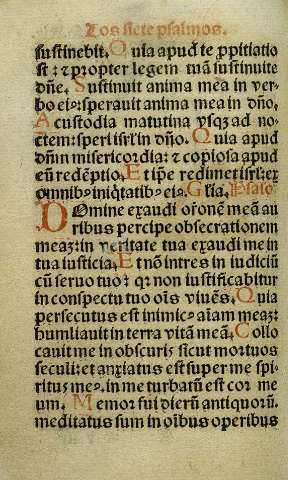 Los siete psalmos.
sustinebit. Quia apud te ꝓpitiatio
est: ⁊ propter legem tuã sustinuite
dñe. Sustinuit anima mea in ver-
bo ei⁹: sperauit anima mea in dño.
A custodia matutina vsqꝫ ad no-
ctem: speri isrl̃ in dño. Quia apud
dñm misericordia: ⁊ copiosa apud
eũ redẽptio. Et ip̃e redimet isrl̃: ex
omnib⁹ iniq̃tatib⁹ ei⁹. Gl̃ia. Psalo
Domine exaudi or̃onẽ meã au
ribus percipe obsecrationem
meaꝫ: in veritate tua exaudi me in
tua iusticia. Et nõ intres in iudiciũ
cũ seruo tuo: qꝛ non iustificabitur
in conspectu tuo oĩs viuẽs. Quia
persecutus est inimic⁹ aĩam meaꝫ:
humiliauit in terra vitã meã. Collo
cauit me in obscuris sicut mortuos
seculi: et anxiatus est super me spi-
ritus me⁹. in me turbatũ est cor me
um. Memor fui dierũ antiquorũ.
meditatus sum in oĩbus operibus